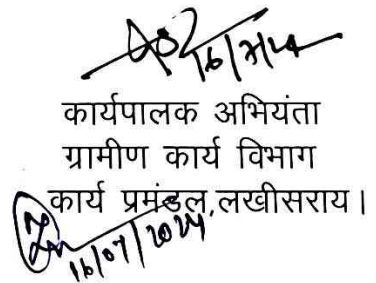 16/7/24
कार्यपालक अभियंता
ग्रामीण कार्य विभाग
कार्य प्रमंडल, लखीसराय।
16/07/2024